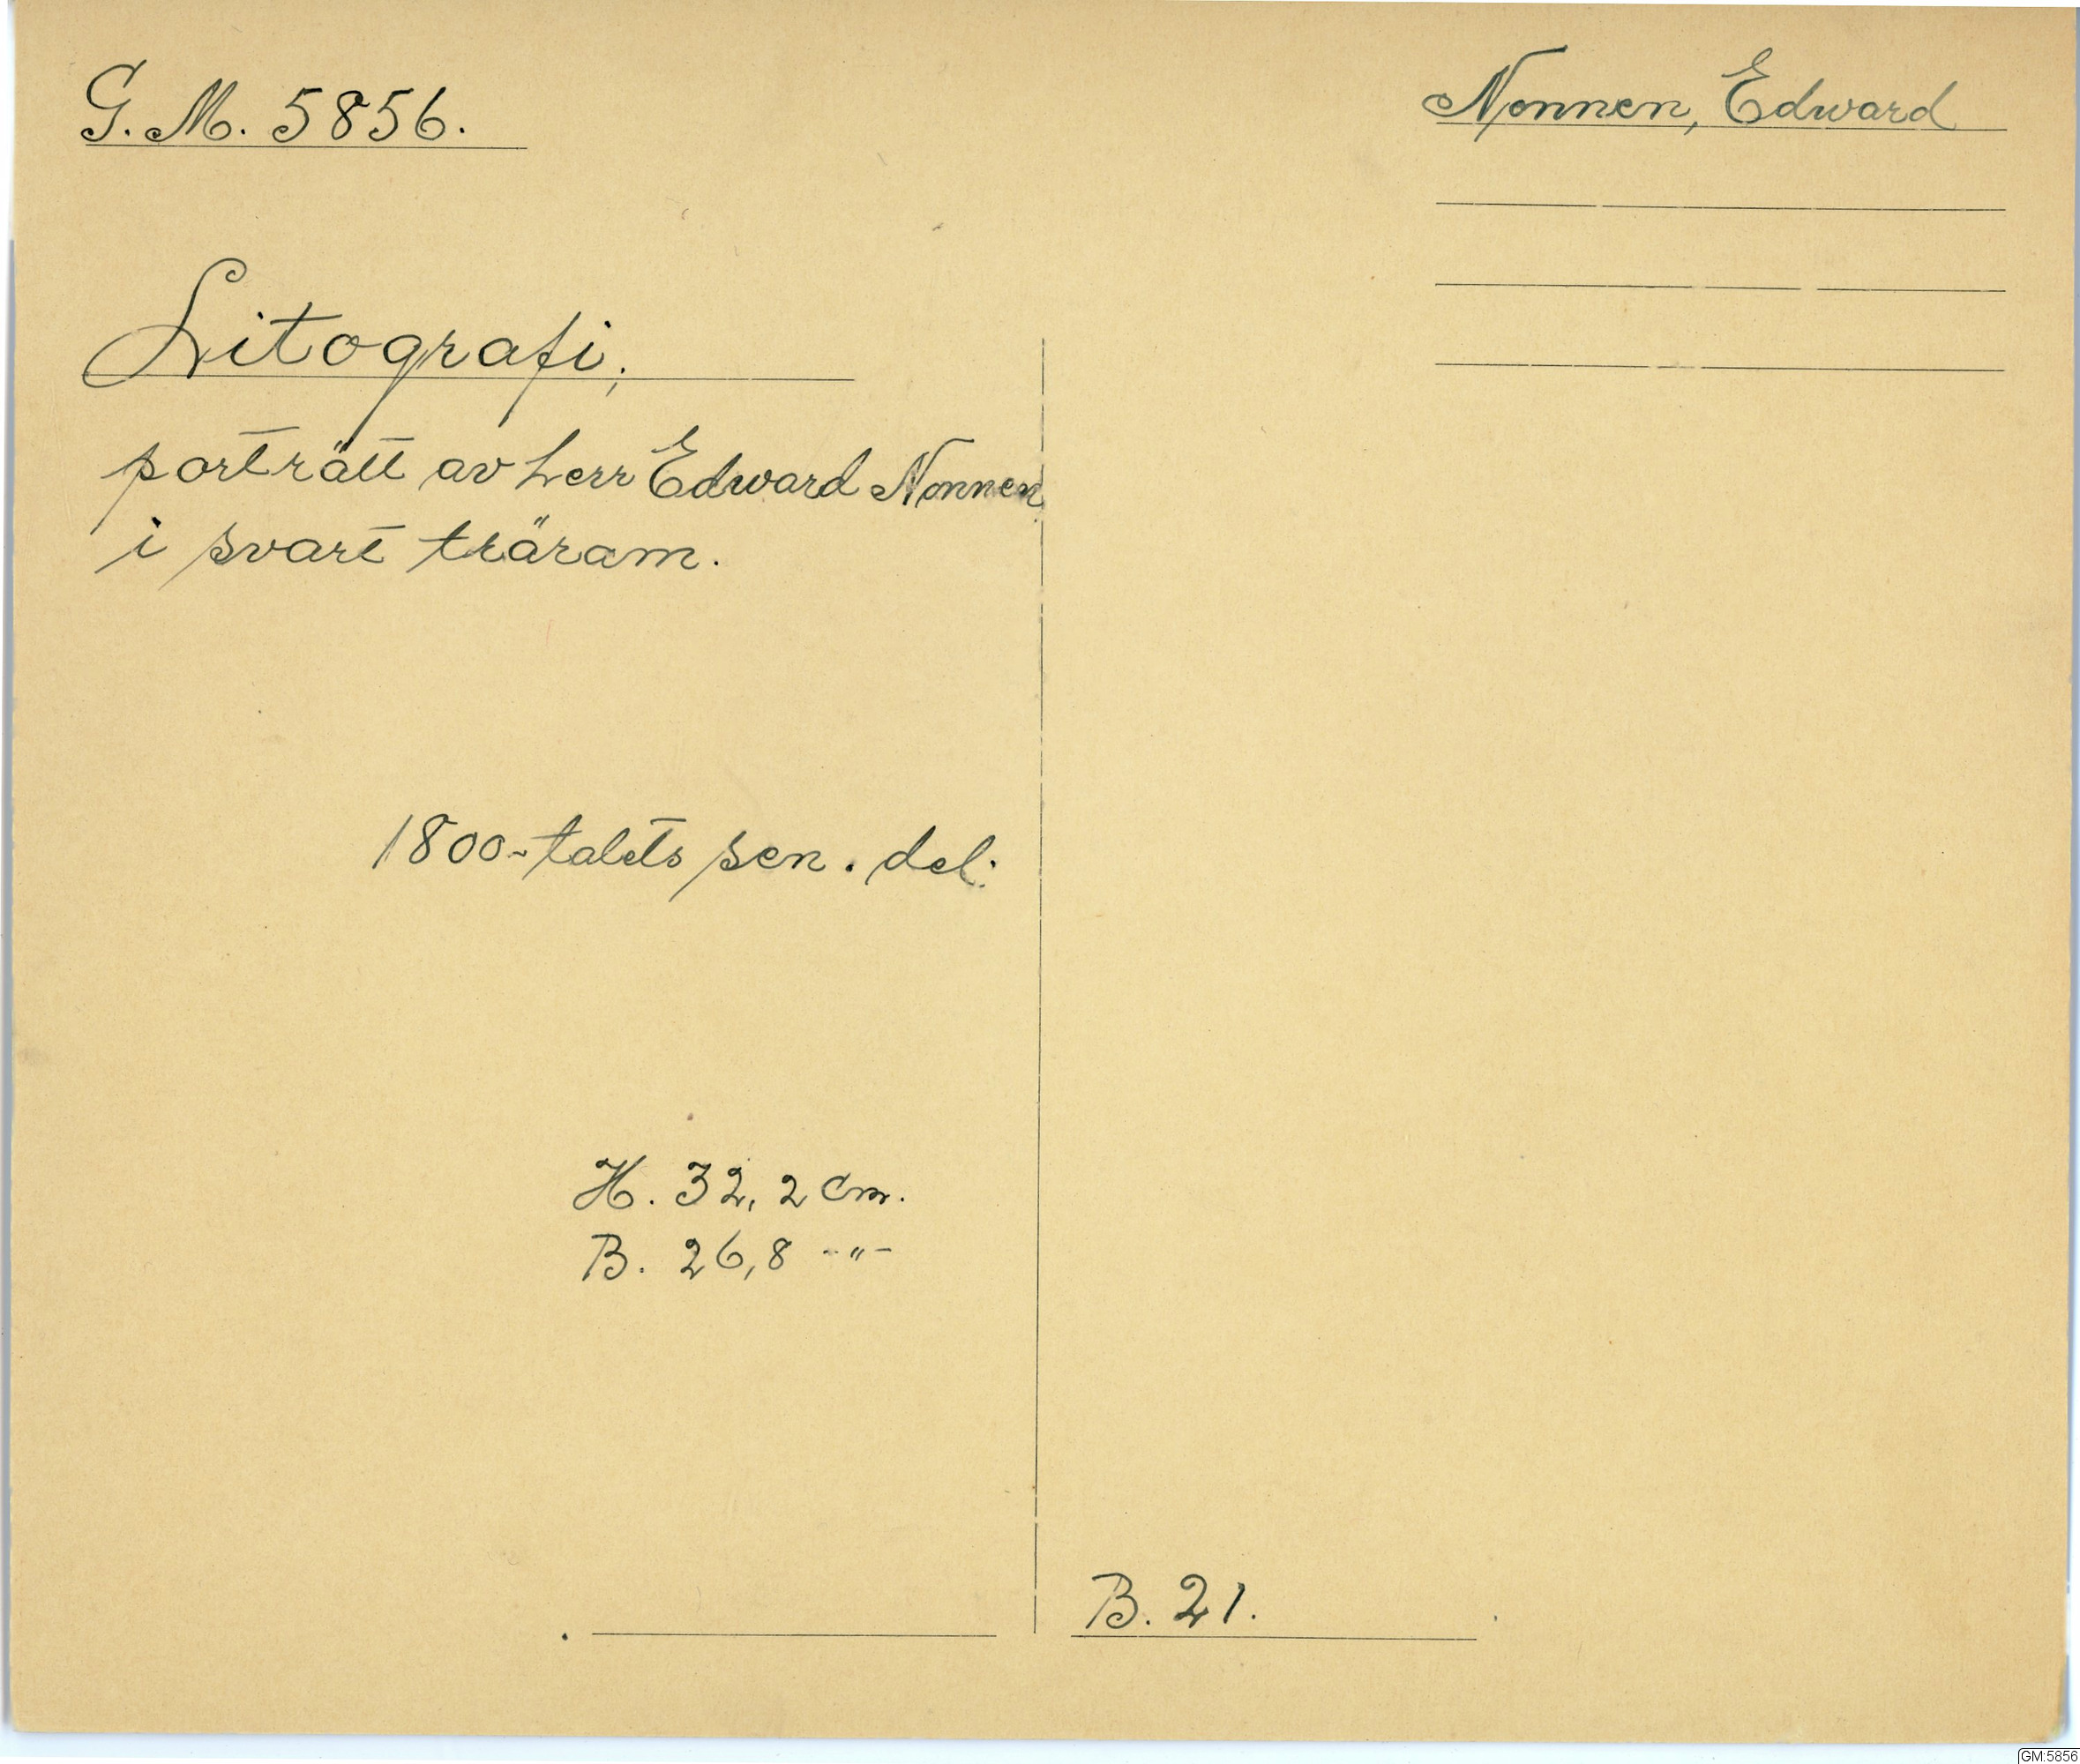 G. M. 5856.
Nonnen, Edward
Litografi,
porträtt av herr Edward Nonnen
i svart träram.
1800-talets sen. del.
H. 32,2 cm.
B. 26,8 -"-
B. 21.
GM:5856